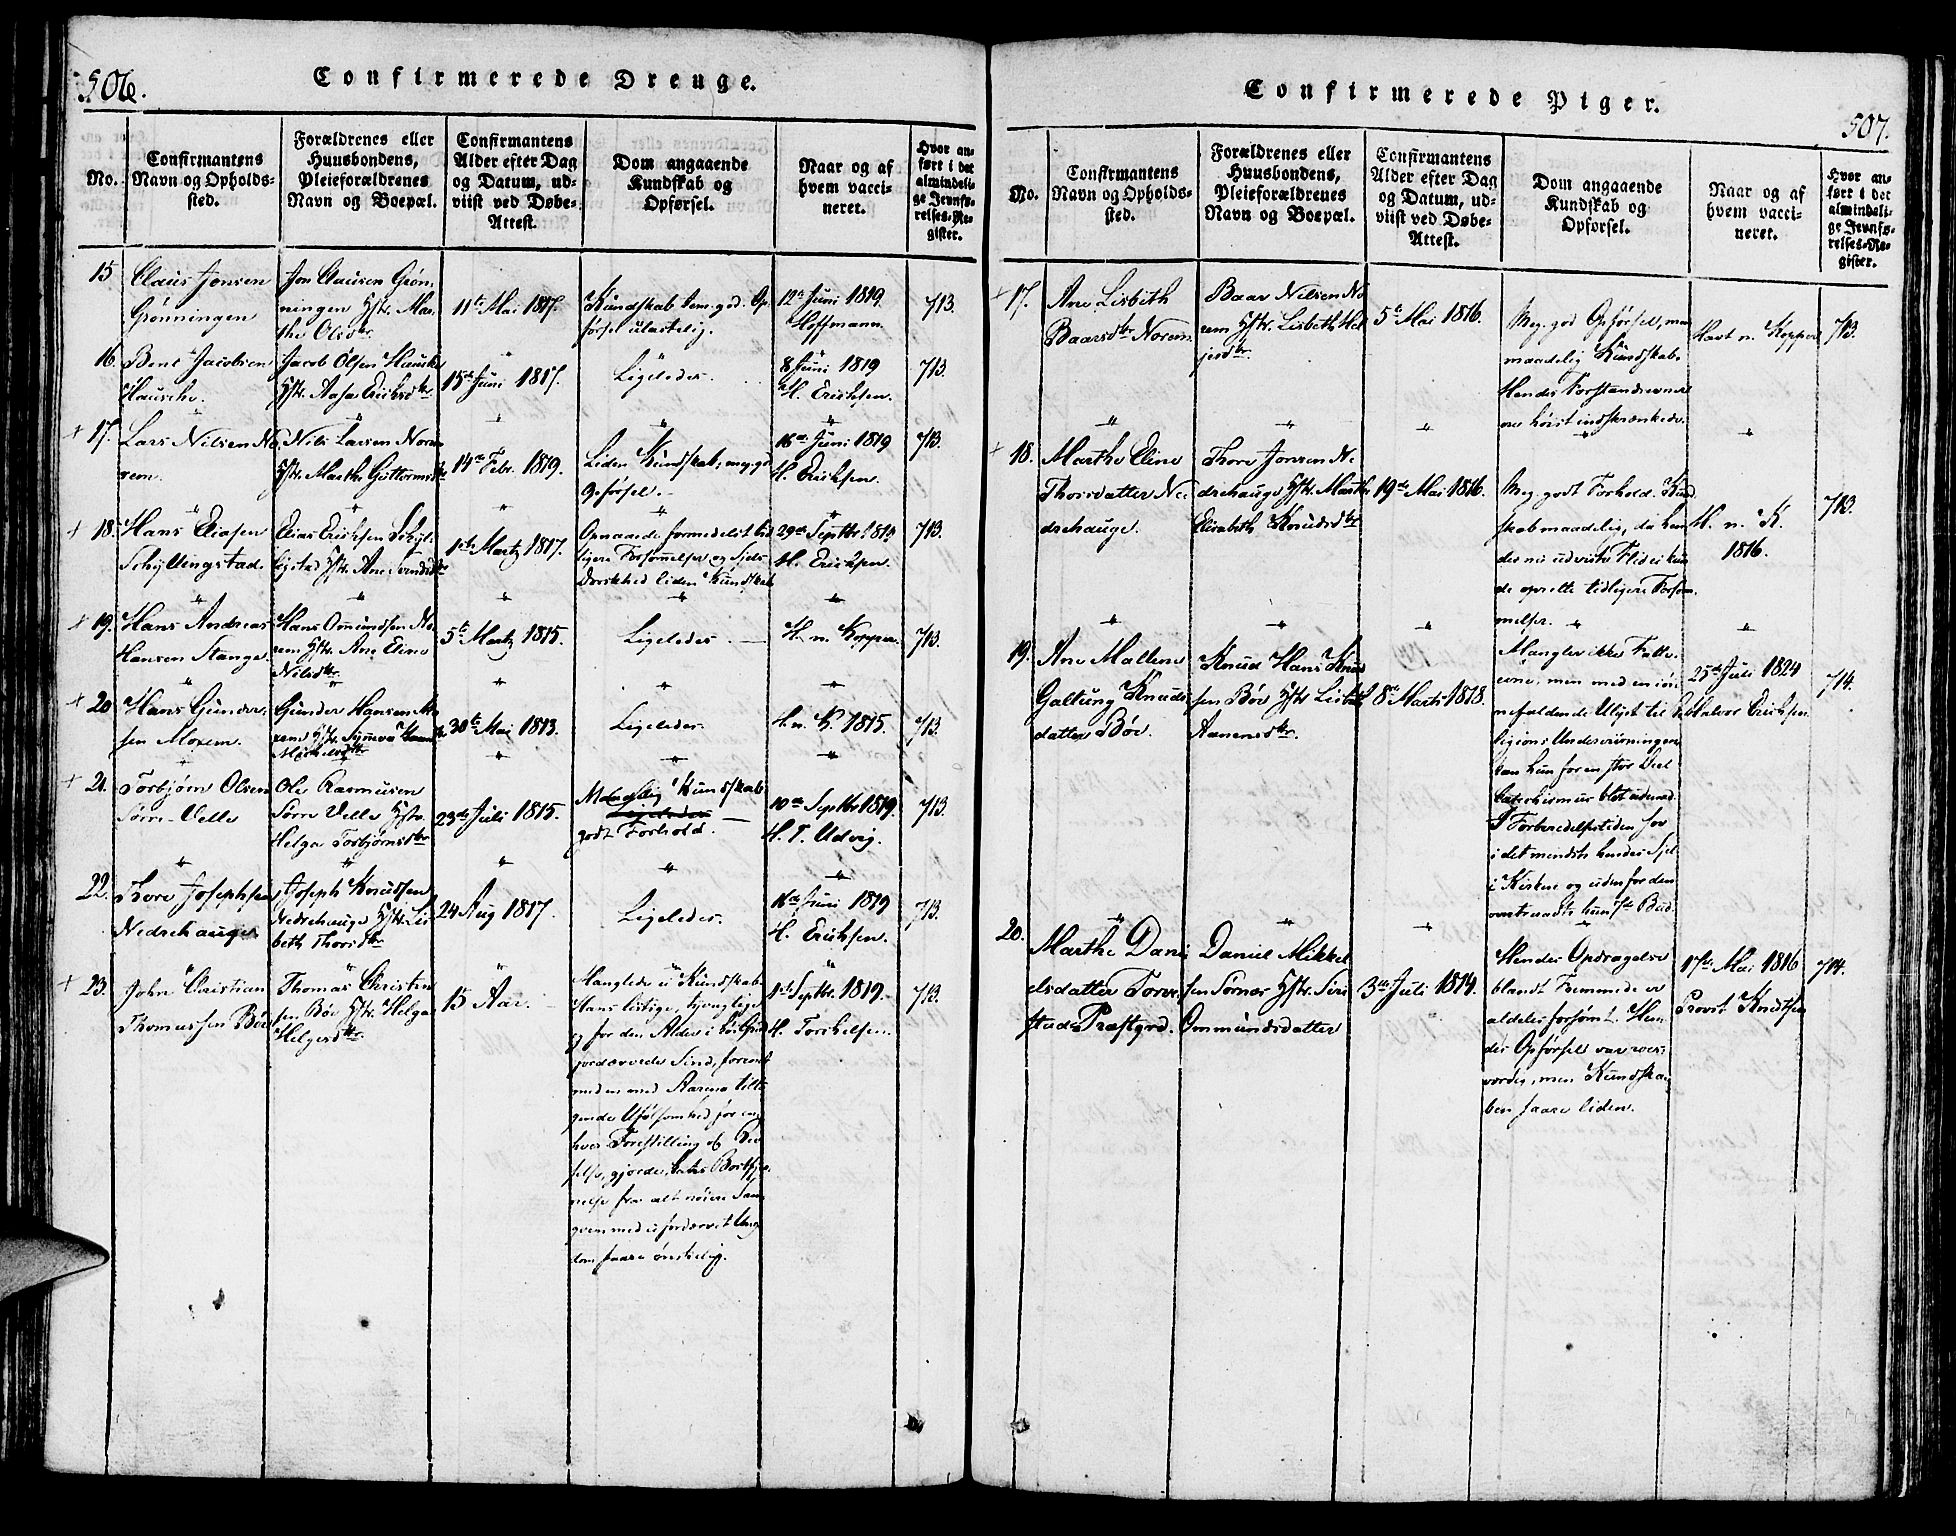 506.
Confirmerede Drenge.
No.
Confirmantens
Navn og Opholds-
sted.
Forældrenes eller
Huusbondens,
Pleieforældrenes
Navn og Boepæl.
Confirmantens
Alder efter Dag
og Datum, ud-
viist ved Døbe-
Attest.
Dom angaaende
Kundskab og
Opførsel.
Naar og af
hvem vacci-
neret.
Hvor an-
ført i det
almindeli-
ge Jevnfø-
relses-Re-
gister.
15
Claus Jonsen
Grønningen
Jon Clausen Grøn-
ningen Hstr. Mar-
the Olsdtr
11te Mai 1817.
Kundskab tem. god. Op-
førsel ulastelig.
12te Juni 1819
Hoffmann.
713.
16.
Bent Jacobsen
Hausche.
Jacob Olsen Hausche
Hstr. Aasa Ericksdtr
15de Juni 1817.
Ligeledes.
8 Juni 1819
H. Erichsen.
713.
+ 17.
Lars Nilsen No-
rem.
Nils Larsen Norem
Hstr. Marthe Guttormsdtr
14de Febr. 1819.
Liden Kundskab, meg. god
Opførsel.
16de Juni 1819
H. Erichsen.
713.
+ 18.
Hans Eliasen
Schyllingstad.
Elias Erichsen Schyl-
ligstad Hstr. Ane Svendsdtr
1ste Martz 1817.
Opnaaede formedelst tid-
ligere Forsømmelse og Sjels
Dorskhed liden Kundskab
29de Septbr. 1819
H. Erichsen.
713.
+ 19.
Hans Andreas
Hansen Stange.
Hans Omundsen No-
rem Hstr. Ane Eline
Nilsdtr
5te Martz 1815.
Ligeledes.
H. n. Kopper.
713.
+ 20
Hans Gunder-
sen Norem.
Gunder Hansen No-
rem Hstr.
30te Mai 1813.
Ligeledes.
H. n. K. 1815.
713.
+ 21.
Torbjørn Olsen
Sørre-Velle
Ole Rasmusen
Sørre Velle Hstr.
Helga Torbjørnsdtr
23de Juli 1815.
Maadelig Kundskab
Ligeledes
godt Forhold.
10de Septbr 1819.
H. T. Udvig.
713.
22.
Thore Josephsen
Nedrehauge
Joseph Knudsen
Nedrehauge Hstr. Lis-
beth Thorsdtr
24 Aug 1817.
Ligeledes.
16de Juni 1819
H. Erichsen.
713.
+ 23.
John Christian
Thomassen Bøe
Thomas Christen-
sen Bøe Hstr. Helga
Helgesdtr.
15 Aar.
Manglede ei Kundskab.
Hans listige,
og for den Alder i
fordærvede Sind, forenet
med en med Aarene tilta-
gende Ufølsomhed for en-
hver Forestilling og
gjorde hans Bortfjer-
nelse fra alt nøiere Sam-
qvem med ei fordærvet Ung-
dom saare ønskelig.
1ste Septbr. 1819.
H. Torkelsen.
713.
Confirmerede Piger.
507.
No.
Confirmantens
Navn og Opholds-
sted.
Forældrenes eller
Huusbondens,
Pleieforældrenes
Navn og Boepæl.
Confirmantens
Alder efter Dag
og Datum, ud-
viist ved Døbe-
Attest.
Dom angaaende
Kundskab og
Opførsel.
Naar og af
hvem vacci-
neret.
Hvor an-
ført i det
almindeli-
ge Jevnfø-
relses-Re-
gister.
+ 17.
Ane Lisbeth
Baarsdtr Norem.
Baar Nilsen No-
rem Hstr. Lisbeth Hel-
jesdtr.
5te Mai 1816.
Meg. god Opførsel, men
maadelig Kundskab.
Hendes Forstandsevner
ere høist indskrænkede.
Havt n. Kopper
713.
+ 18.
Marthe Eline
Thorsdatter Ne-
drehauge.
Thore Jonsen Ne-
drehauge Hstr. Marthe
Elisabeth Knudsdtr
19de Mai 1816.
Meg. godt Forhold. Kund-
skab maadelig, da hen-
des nu udviste Flid ei kun-
de oprette tidligere Forsøm-
melse.
H. n. K.
1816.
713.
19.
Ane Mallene
Galtung Knuds-
datter Bøe.
Knud Hans Knud-
sen Bøe Hstr. Lisbeth
Aanensdtr.
8de Marts 1818.
Mangler ikke Fatte-
evne, men med en iøi-
nefaldende Ulyst til Re-
ligions Underviisningen
kan hun for en stor Deel
Catechismus blot udenad.
I Forberedelsestiden sov
i det mindste hendes Sjel
i Kirken og udenfor den
overtraadte hun 7de Bud.
25de Juli 1824
Halvor Erichsen
714.
20.
Marthe Dani-
elsdatter Torve-
stads Præstgrd.
Daniel Mikkel-
sen Sørnæs Hstr. Siri
Ommundsdatter
3die Juli 1814.
Hendes Opdragelse
blandt Fremmede er
aldeles forsømt. Hen-
des Opførsel var roes-
værdig, men Kundska-
ben saare liden.
17de Mai 1816
Provst Knudsen
714.